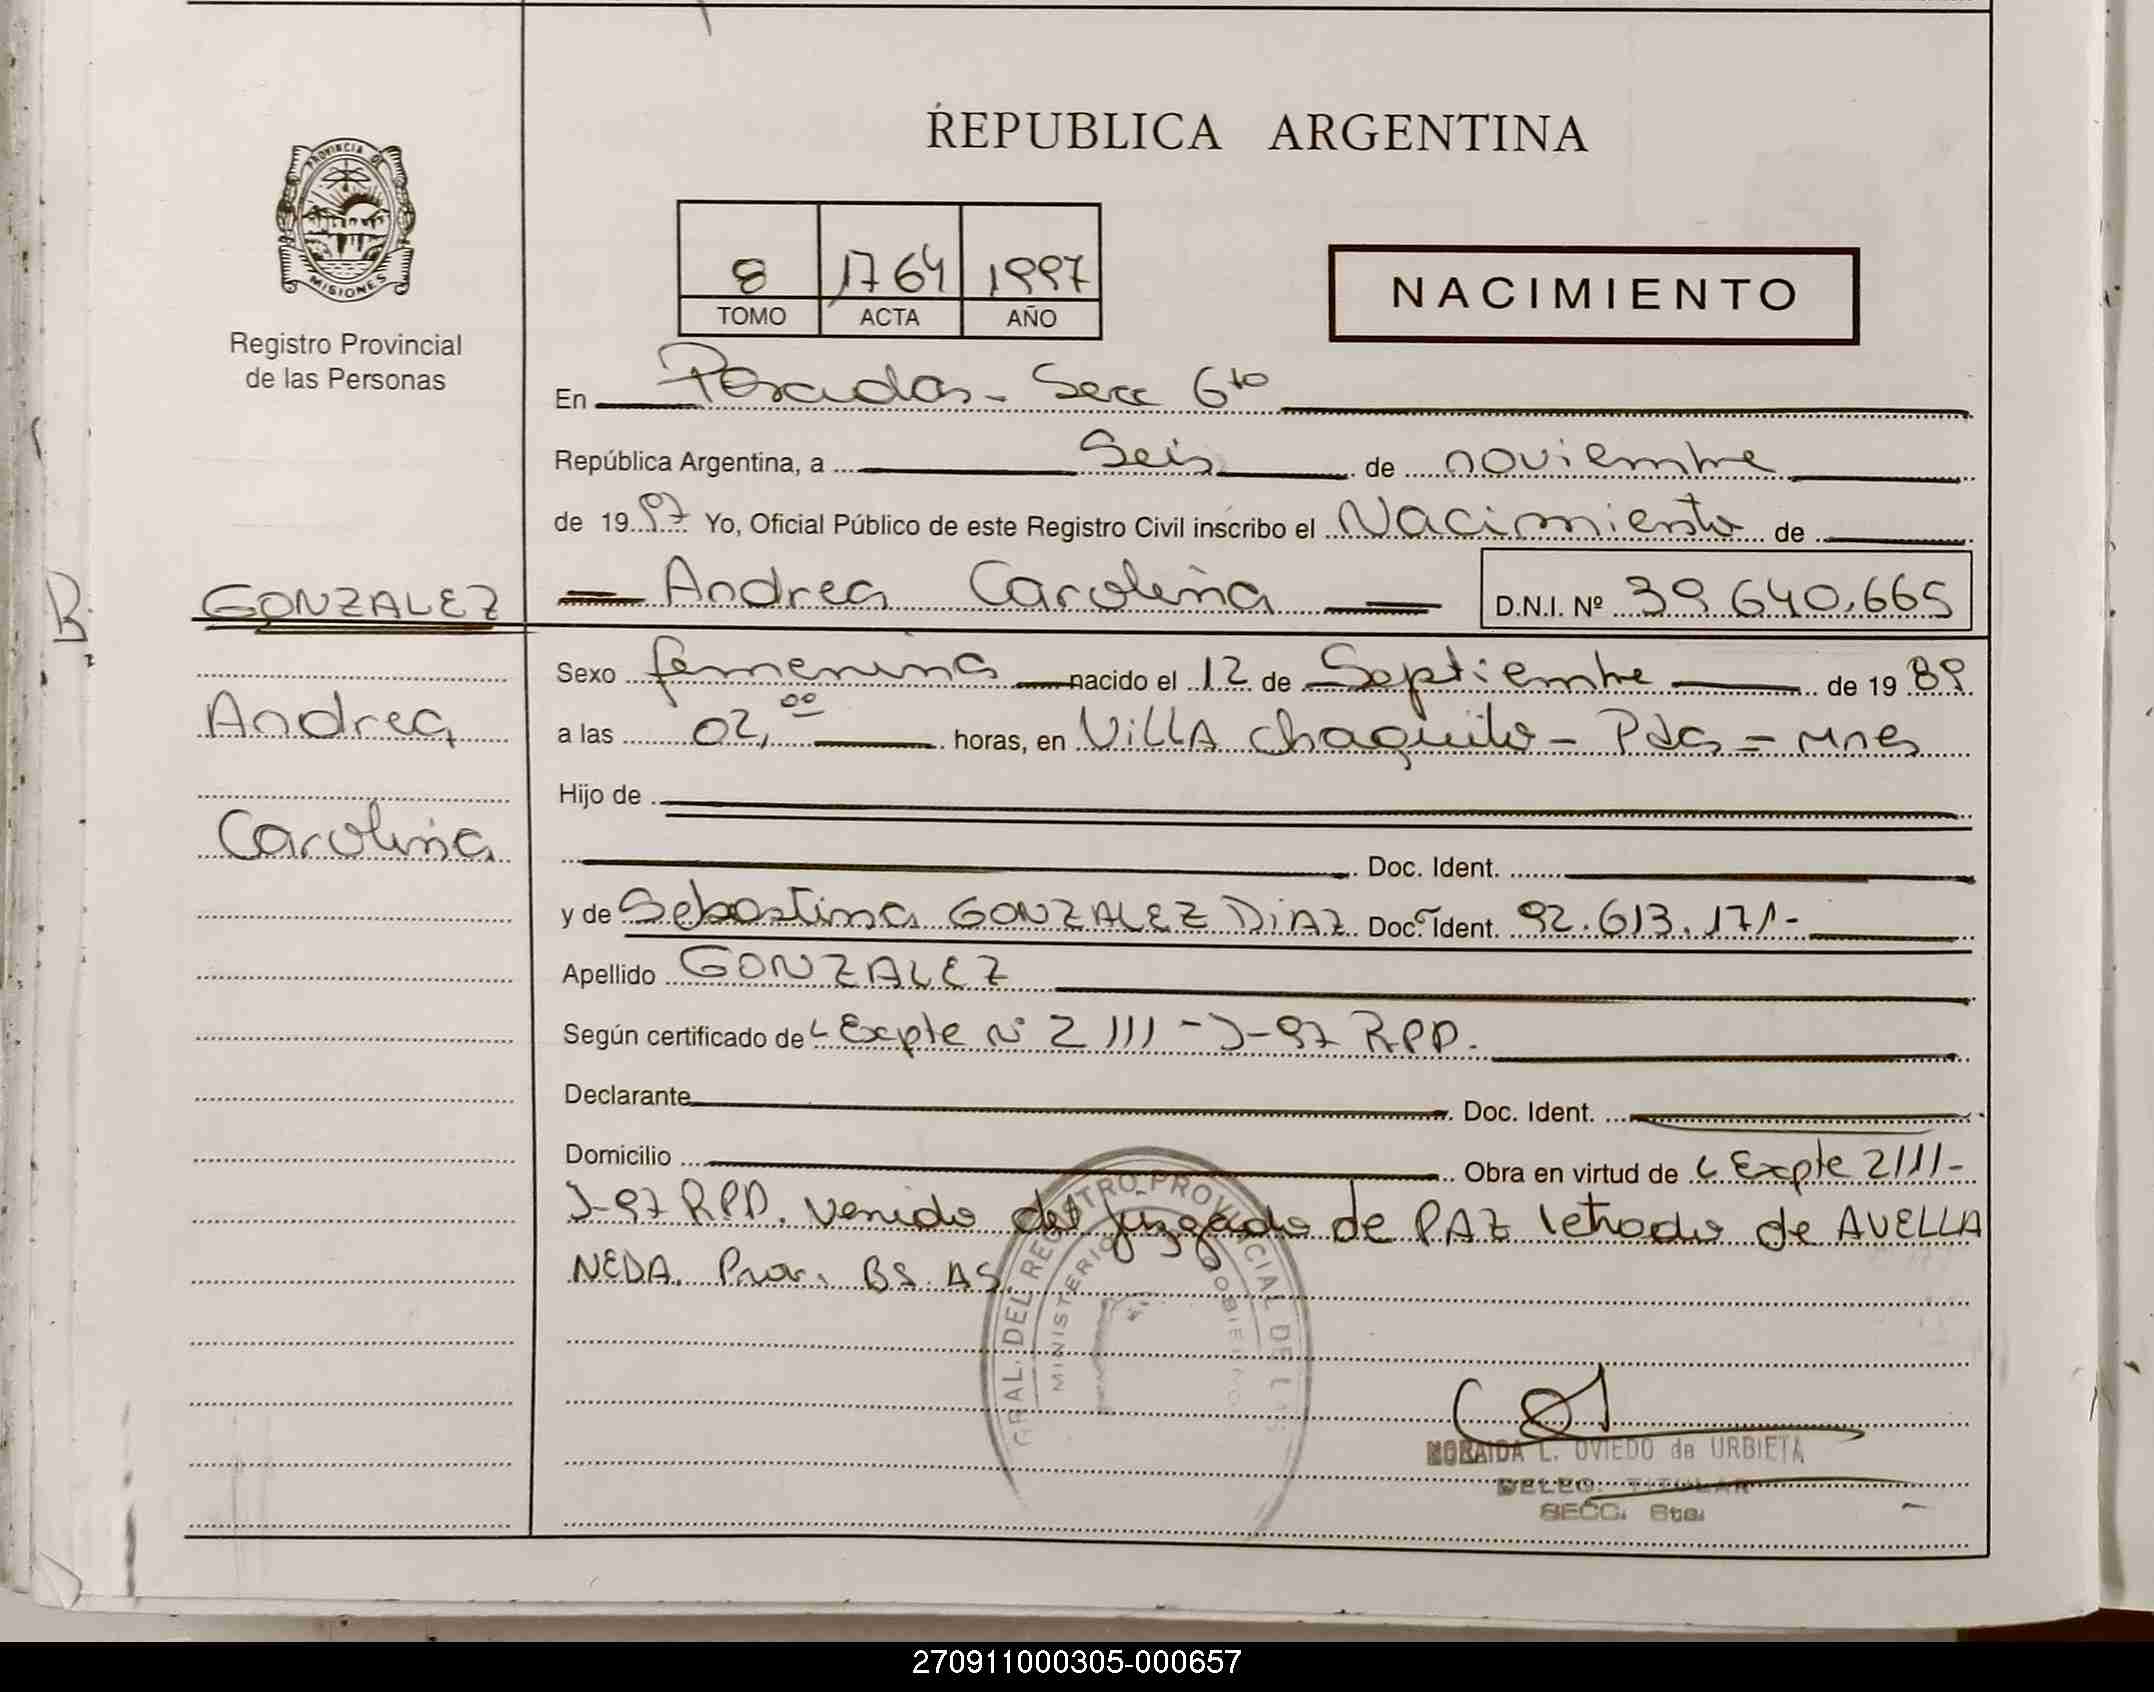 REPUBLICA ARGENTINA
PROVINCIA DE
MISIONES
Registro Provincial
de las Personas
8 1764 1997
TOMO ACTA AÑO
NACIMIENTO
En Posadas - Secc 6ta
República Argentina, a Seis de noviembre
de 1997 Yo, Oficial Público de este Registro Civil inscribo el Nacimiento de
GONZALEZ
Andrea Carolina D.N.I. Nº 39.640.665
Sexo femenina nacido el 12 de Septiembre de 1989
Andrea
a las 02,00 horas, en VILLA Chaquito - Pdas - Mnes
Hijo de
Carolina
Doc. Ident.
y de Sebastiana GONZALEZ DIAZ Doc. Ident. 92.613.171-
Apellido GONZALEZ
Según certificado de Expte Nº 2111-J-97 RPP.
Declarante Doc. Ident.
Domicilio Obra en virtud de Expte 2111-
J-97 RPP. Venido del Juzgado de PAZ letrado de AVELLA
NEDA. Prov. BS. AS.
GRAL. DEL REGISTRO PROVINCIAL DE L
MINISTERIO GOBIERNO
NORAIDA L. OVIEDO de URBIETA
DELEG. TITULAR
SECC. 6ta.
270911000305-000657